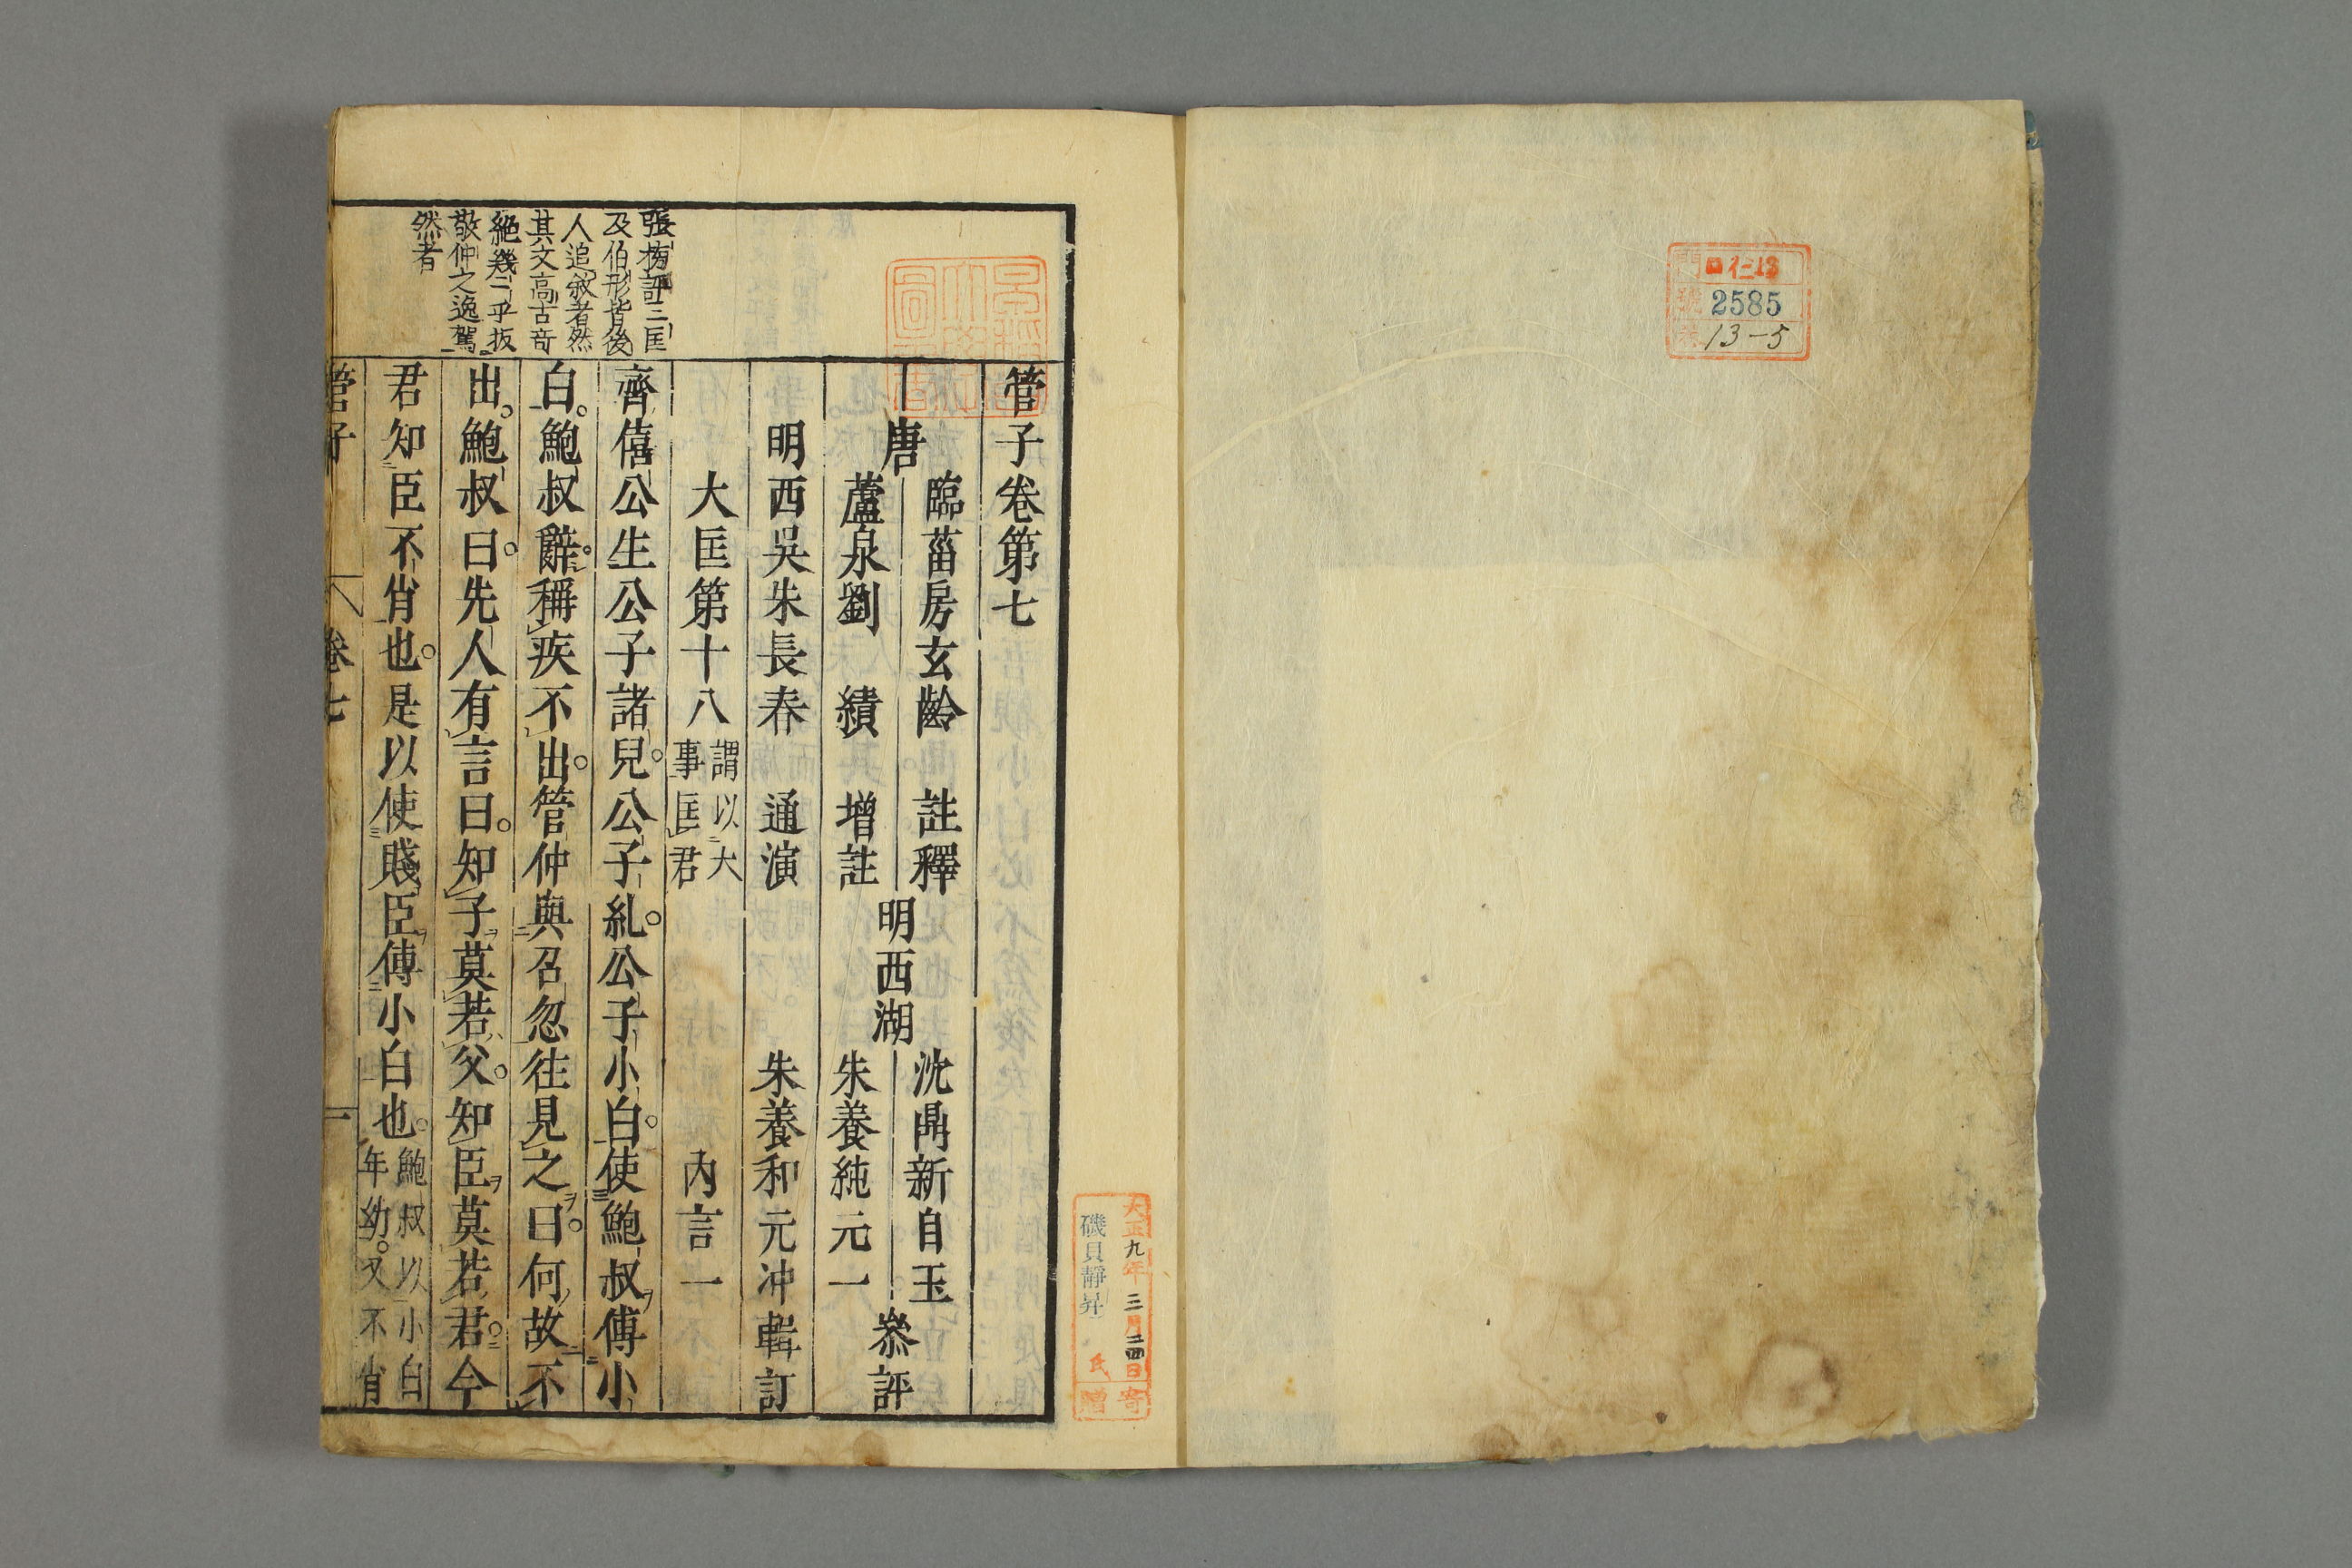 門 ロ仁13
號 2585
13-5
大正九年三月二四日寄
磯貝靜昇氏贈
管子卷第七
唐
臨菑房玄齡 註釋
蘆泉劉 績 增註
明西湖
沈鼎新自玉
朱養純元一
叅評
明西吳朱長春 通演
朱養和元冲輯訂
大匡第十八
謂以大
事匡君
內言一
齊僖公生公子諸兒。公子糺。公子小白。使鮑叔傅小
白。鮑叔辭。稱疾不出。管仲與召忽往見之。曰。何故不
出。鮑叔曰。先人有言曰。知子莫若父。知臣莫若君。今
君知臣不肖也。是以使賤臣傅小白也。
鮑叔以小白
年幼。又不肖
張榜評三匡
及伯形皆後
人追敘者然
其文高古奇
絕幾乎扳
敬仲之逸駕
然者
管子
卷七
一